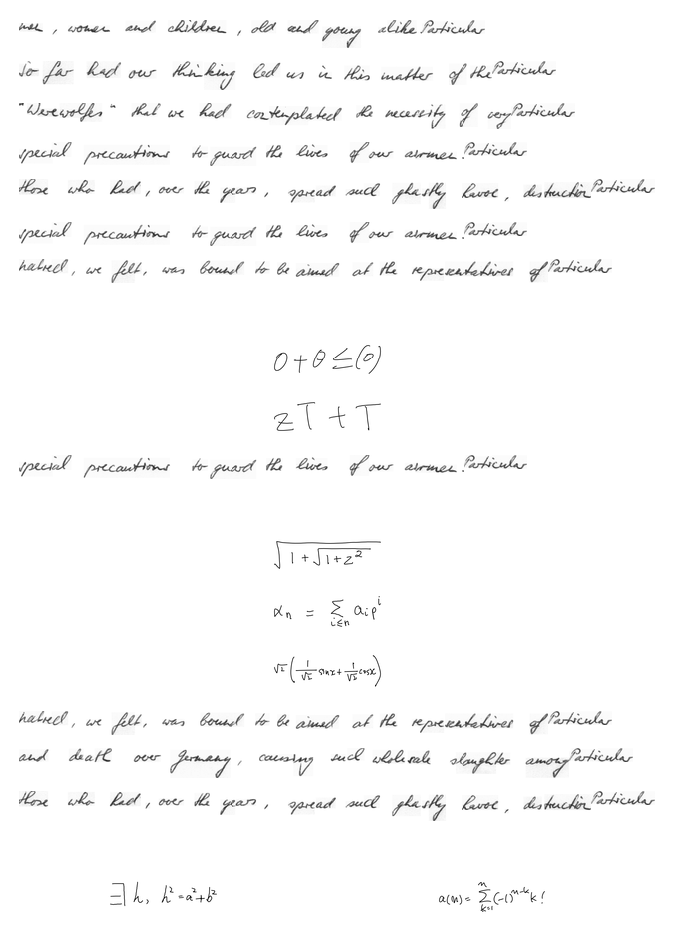 men, women and children, old and young alike Particular
So far had our thinking led us in this matter of the Particular
"Werewolfes" that we had contemplated the necessity of very Particular
special precautions to guard the lives of our airmen. Particular
those who had, over the years, spread such ghastly havoc, destruction Particular
special precautions to guard the lives of our airmen. Particular
hatred, we felt, was bound to be aimed at the representatives of Particular
0 + θ ≤ (0)
zT + T
special precautions to guard the lives of our airmen. Particular
√(1 + √(1+z²))
α_n = ∑_{i≤n} a_i p^i
√2 (1/√2 sin x + 1/√2 cos x)
hatred, we felt, was bound to be aimed at the representatives of Particular
and death over Germany, causing such wholesale slaughter among Particular
those who had, over the years, spread such ghastly havoc, destruction Particular
∃ h, h² = a² + b²
a(n) = ∑_{k=1}^{n} (-1)^{n-k} k!